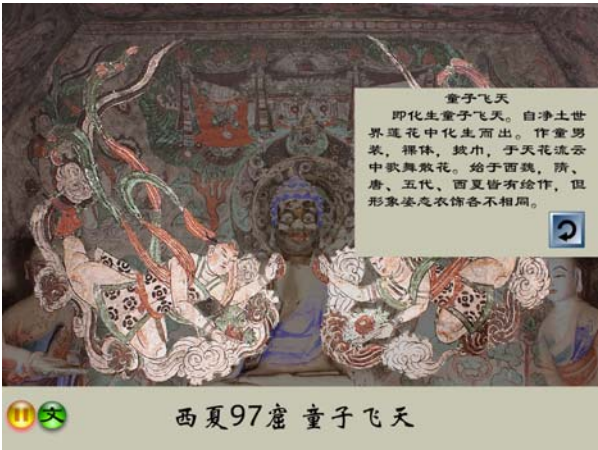 童子飞天
即化生童子飞天。自净土世
界莲花中化生而出。作童男
装，裸体，披巾，于天花流云
中歌舞散花。始于西魏，隋、
唐、五代、西夏皆有绘作，但
形象姿态衣饰各不相同。
文
西夏97窟 童子飞天